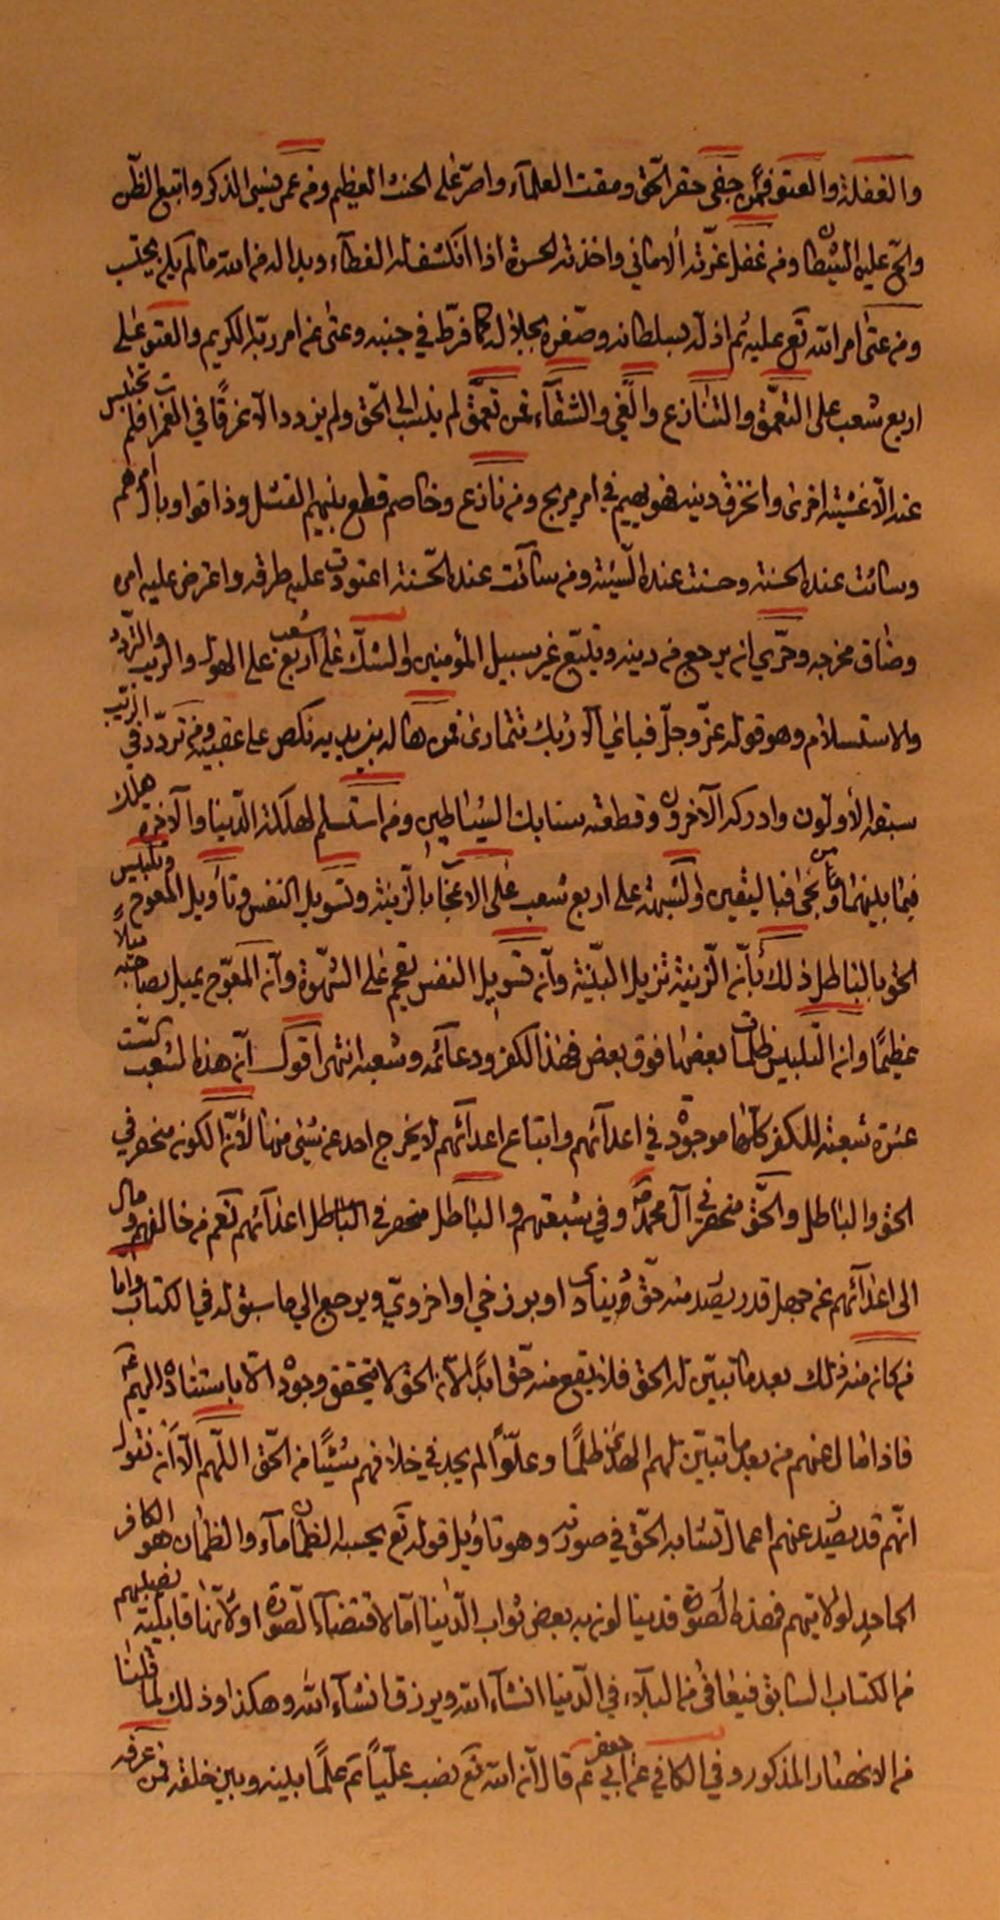 والغفلة والعتو فمن جفى حقر الحق ومقت العلمآء واصر على الحنث العظيم ومن عمى نسى الذكر واتبع الظن
والح عليه الشيطان ومن غفل غرّته الاماني واخذته الحسرة اذا انكشف له الغطآء وبدا له من الله ما لم يكن يحتسب
ومن عتى امر الله تع عليه ثم اذله بسلطانه وصغره بجلاله كما فرّط في جنبه وعتى عن امر ربه الكريم والعتو على
اربع شعب على التعمّق والتنازع والغي والشقآء فمن تعمق لم ينسب الى الحق ولم يزدد الا غرقًا في الغمرات فلم تحتبس
عنه الّا غشيته اخرى وانخرق دينه فهو يهيم في امر مريج ومن نازع وخاصم قطع بينهم الفشل وذاقوا وبال امرهم
وسائت عنده الحسنة وحسنت عنده السّيئة ومن سائت عنده الحسنة اعتورت عليه طرقه واعترض عليه امره
وضاق مخرجه وحريّ ان يرجع من دينه ويتبع غير سبيل المؤمنين والشك على اربع شعب على الهول والريب والتردد
والاستسلام وهو قوله عزّ وجلّ فباي آلاء ربك تتمارى فمن هاله ما بين يديه نكص على عقبيه ومن تردّد في الريب
سبقه الأولون وادركه الآخرون وقطعته سنابك الشياطين ومن استسلم لهلكة الدّنيا والآخرة هلك
فيما بينهما ومن نجى فباليقين والشبهة على اربع شعب على الاعجاب بالزينة وتسويل النفس وتأويل المعوج وتلبيس
الحق بالباطل ذلك بأنّ الزينة تزيل البيّنة وأنّ تسويل النفس تقحم على الشهوة وأنّ المعوّج يميل بصاحبه ميلًا
عظيمًا وان التلبيس ظلمات بعضها فوق بعض فهذا الكفر ودعائمه وشعبه انتهى اقول انّ هذه الشعب الستّ
عشرة شعبة للكفر كلّها موجودة في اعدآئهم واتباع اعدآئهم لا يخرج احد عن شئ منها لأنّ الكون منحصر في
الحق والباطل والحق منحصر في آل محمد ص وفي شيعتهم والباطل منحصر في الباطل اعدآئهم نعم من خالفهم ومال
الى اعدآئهم عن جهل قد يصدر منه حق دنياوى او برزخي او اخروي ويرجع الى ما سبق له في الكتاب وامّا
من كان منه ذلك بعد ما تبيّن له الحق فلا يقع منه حق ابدًا لأنّ الحق لا يتحقق وجوده الّا باستناده اليهم ع
فاذا مال عنهم من بعد ما تبيّن لهم الهدى ظلمًا وعلوًّا لم يجد في خلافهم شيئًا من الحق اللّهم الّا أن نقول
انّهم قد يصدر عنهم اعمال تشابه الحق في صورته وهو تاويل قوله تع يحسبه الظمآن مآء والظمآن هو الكافر
الجاحد لولايتهم فهذه الصورة قد ينالون به بعض ثواب الدّنيا امّا لاقتضآء الصورة او لأنّها قابلية نصيبهم
من الكتاب السابق فيعافى من البلآء في الدّنيا انشآء الله ويرزق انشآء الله وهكذا وذلك لما قلنا
من الانحصار المذكور وفي الكافي عن ابي جعفر ع قال انّ الله تع نصب عليّا ع علمًا بينه وبين خلقه فمن عرفه